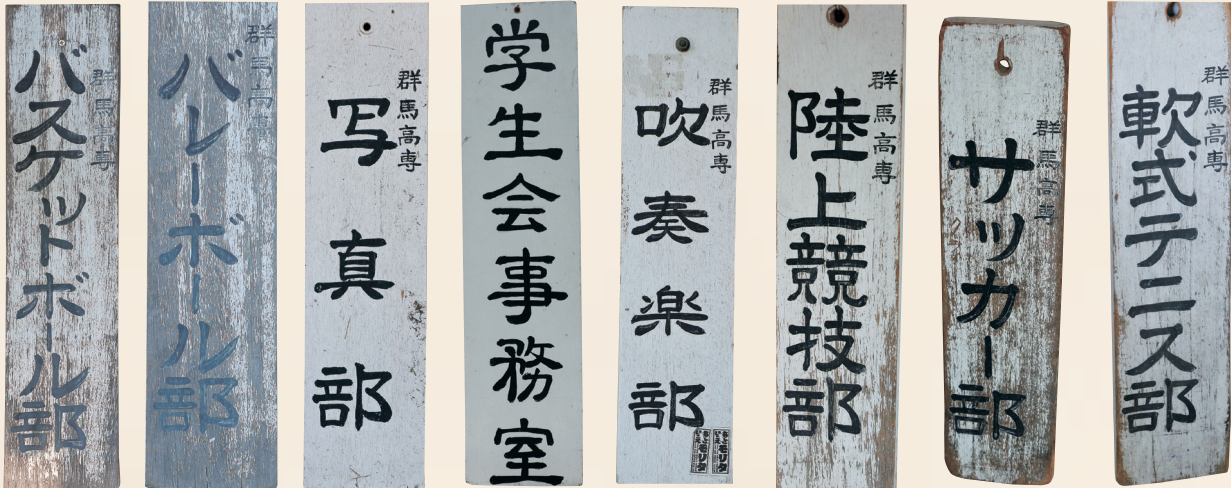 群馬高専
バスケットボール部
群馬高専
バレーボール部
群馬高専
写真部
学生会事務室
群馬高専
吹奏楽部
群馬高専
陸上競技部
群馬高専
サッカー部
群馬高専
軟式テニス部